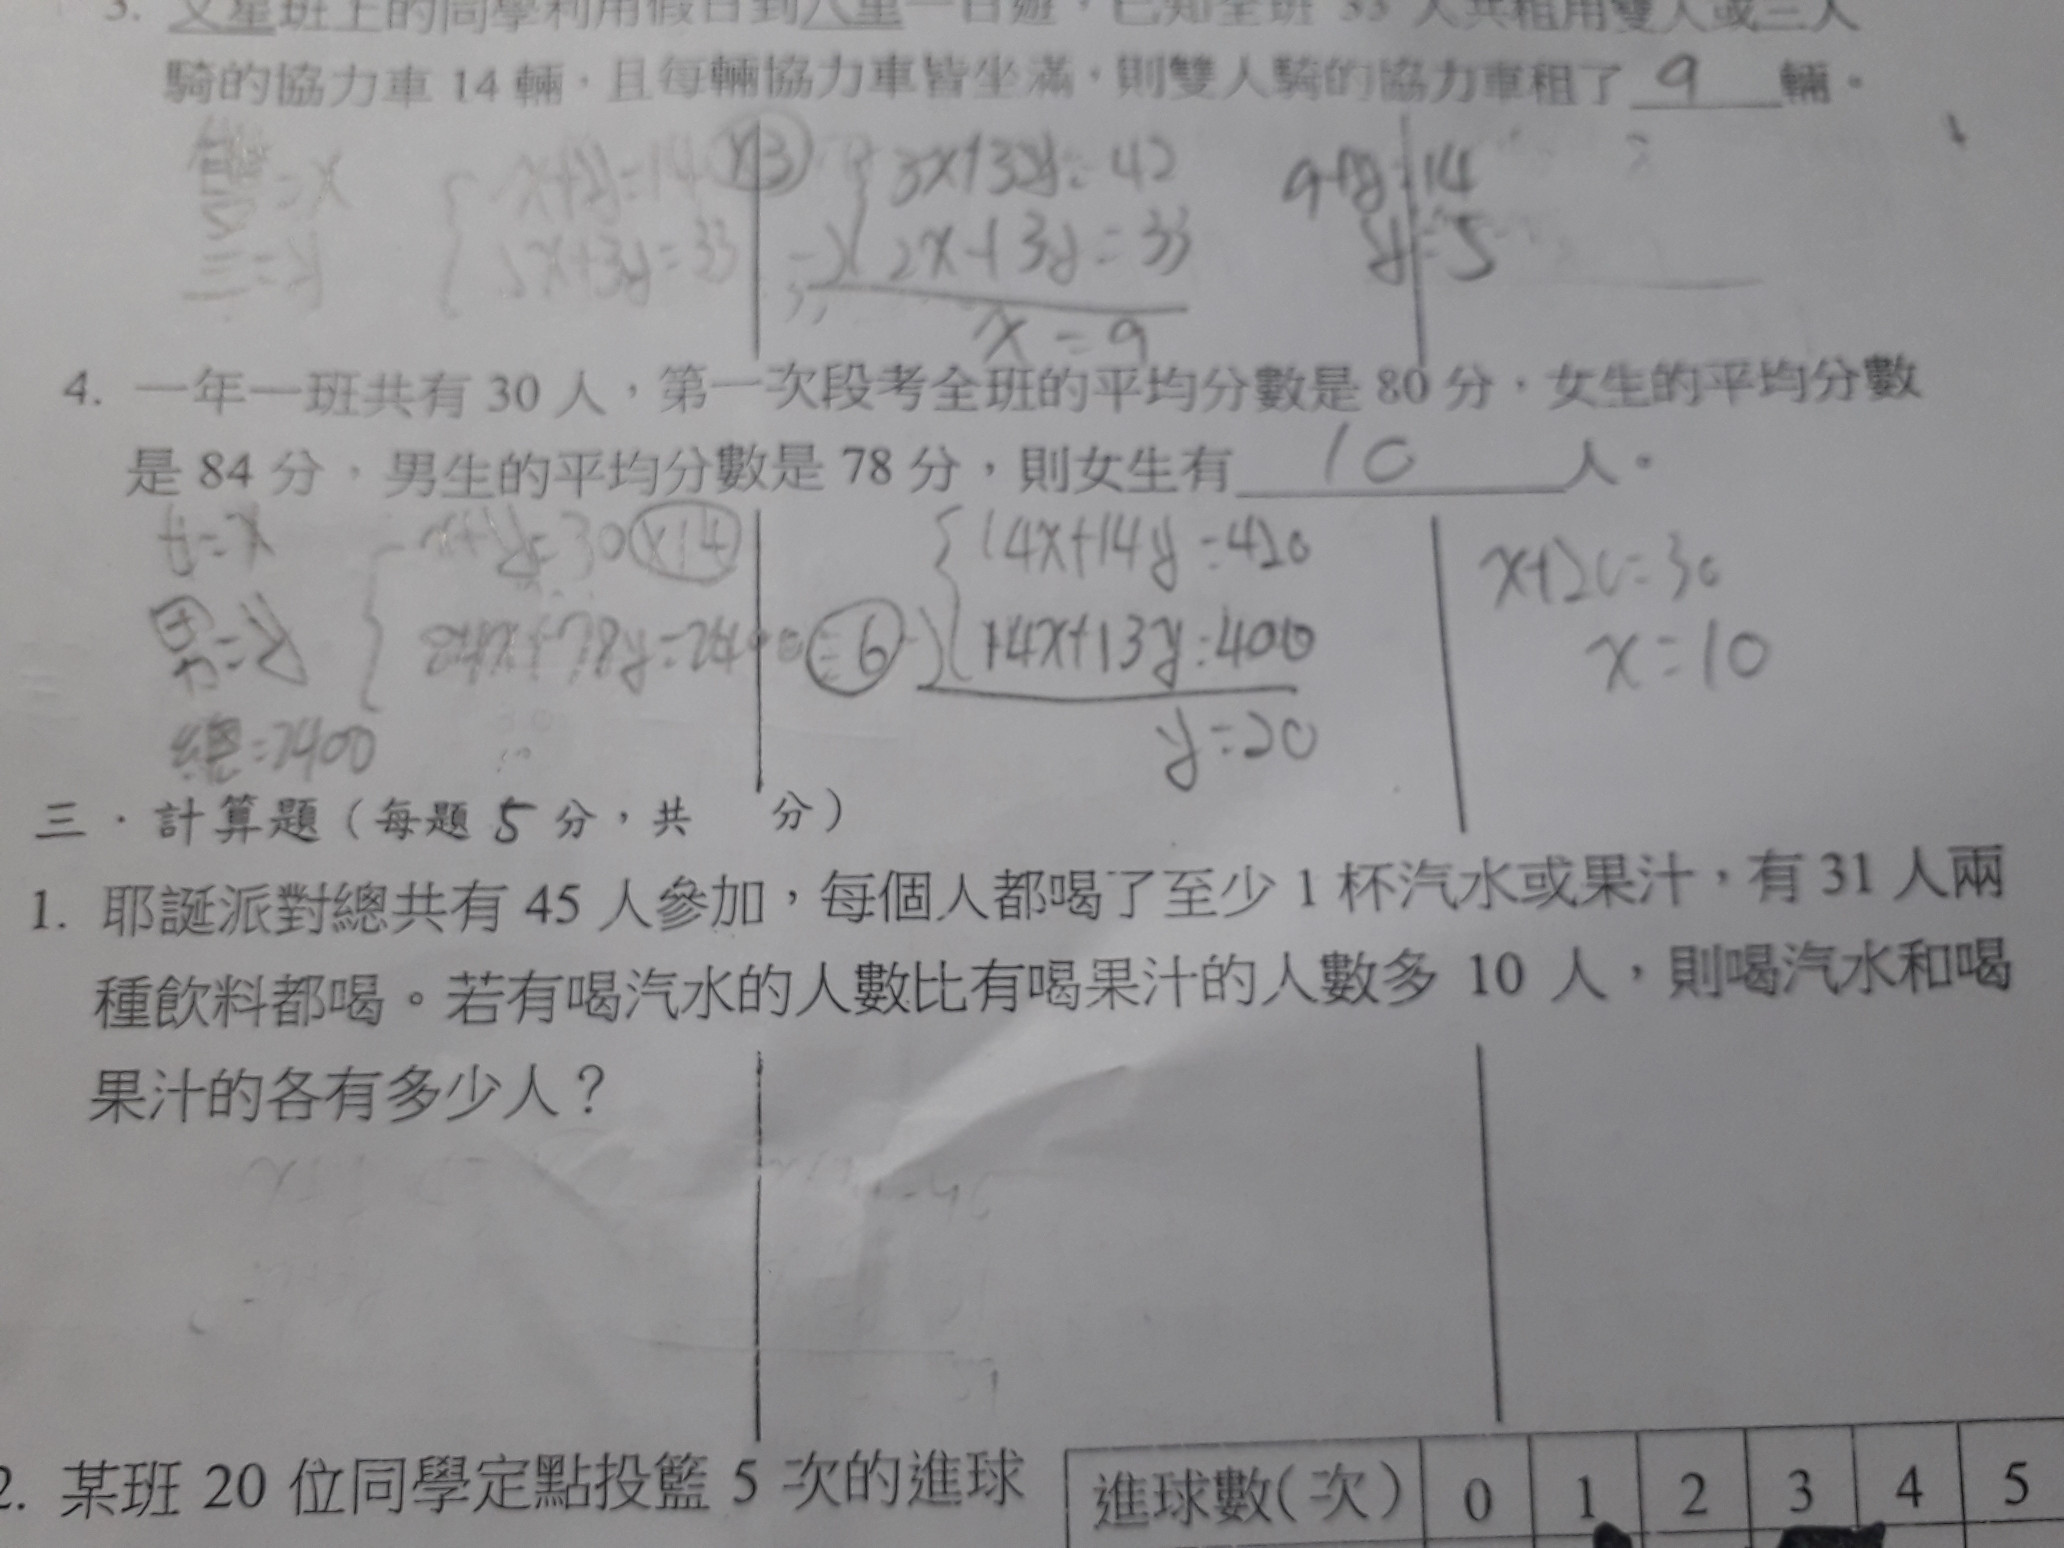 3. 文星班上的同學利用假日到八里一日遊，已知全班 33 人共租用雙人或三人
騎的協力車 14 輛，且每輛協力車皆坐滿，則雙人騎的協力車租了 9 輛。
雙=x
三=y
x+y=14 ×3
2x+3y=33
3x+3y=42
-) 2x+3y=33
x=9
9+y=14
y=5
4. 一年一班共有 30 人，第一次段考全班的平均分數是 80 分，女生的平均分數
是 84 分，男生的平均分數是 78 分，則女生有 10 人。
女=x
男=y
總=2400
x+y=30 ×14
84x+78y=2400 ÷6
14x+14y=420
-) 14x+13y=400
y=20
x+20=30
x=10
三．計算題（每題 5 分，共 分）
1. 耶誕派對總共有 45 人參加，每個人都喝了至少 1 杯汽水或果汁，有 31 人兩
種飲料都喝。若有喝汽水的人數比有喝果汁的人數多 10 人，則喝汽水和喝
果汁的各有多少人？
2. 某班 20 位同學定點投籃 5 次的進球
進球數(次) 0 1 2 3 4 5